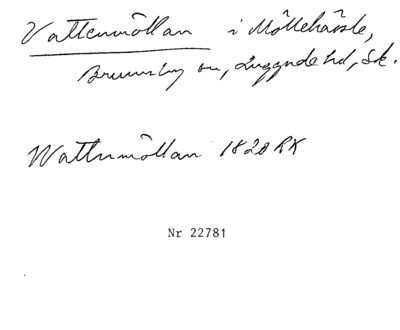 Vattenmöllan i Möllehässle,
Brunnby sn, Luggude hd, Sk.
Wattnmöllan 1820 RK
Nr 22781